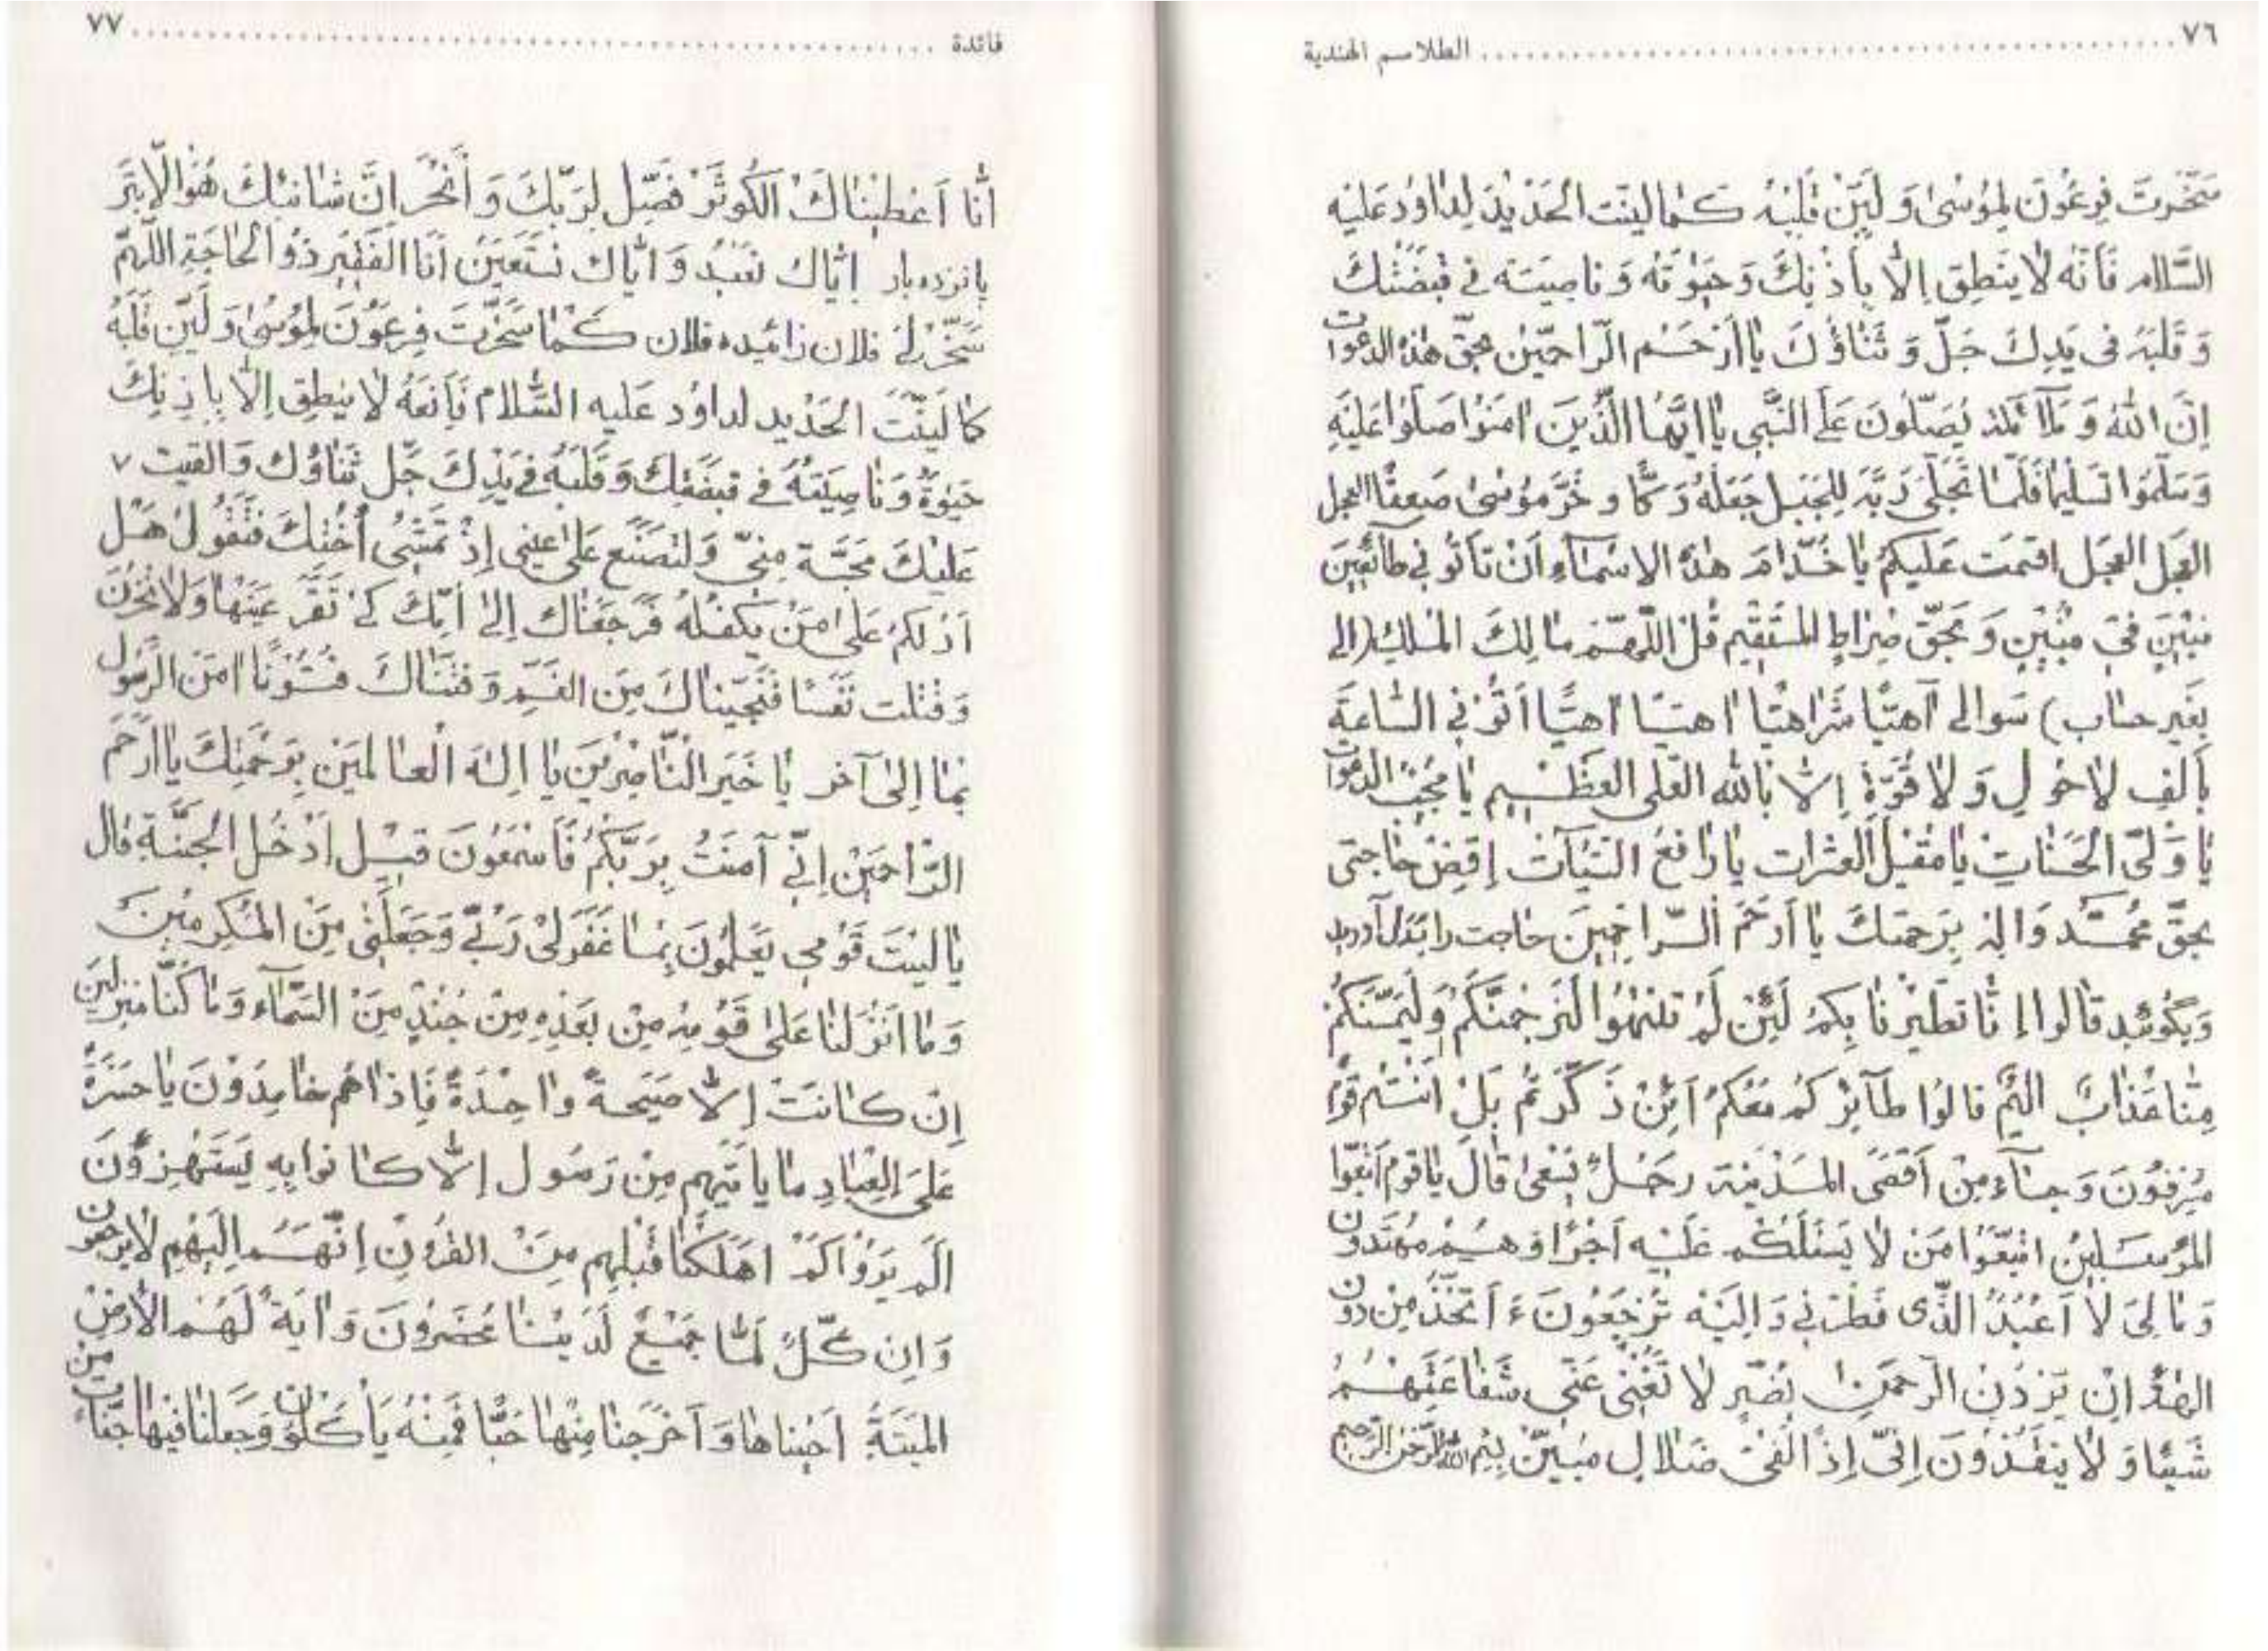 ٧٦ ........ الطلاسم الهندية
سَخَّرْتَ فِرعَوْنَ لِمُوْسىٰ وَ لَيِّنْ قَلْبَهُ كَما لينَت الحَدْيدَ لِداوُدَ عَليَهِ
السَّلام فَأنَهُ لا يَنطِق إلّا بِاَذنِكَ وَ حَيٰوتَهُ وَ ناصِيَتَه في قَبضَتْكَ
وَ قَلبَهُ فى يَدِكَ جَلّ وَ ثَناؤُكَ يا اَرْحَم الرّاحمّين بحقّ هذه الدعوات
اِنَ اللهُ وَ مَلآئكَتَهُ يُصَلّوُنَ عَلَى النَّبِى يا اَيُّهَا الَّذْينَ امَنوُا صَلّوا عَلَيَهِ
وَ سَلّمِوُا تَسليماً فَلَمّا تَجَلّى رَبَّه لِلجَبَل جَعَلَهُ دَكّاً و خَرَّ مُوسىٰ صَعِقاً العجل
العَجل العجَل اقتمت عَليكم يا خُدّامَ هذهُ الاسمآءِ اَنْ تاَتُو نِي طآئِعيَن
فيَ وَ بَحِقّ صِراطِ المسُتَقيِم قُل اللّهُمَّ مالِكَ المُلكِ (الى
بِغَيرِ حساب) سَوالى آهيّا شَراهيّا اَهيّا اَتوُنِي السّاعَةَ
بِاَلفِ لاحَول وَ لا قُوّةَ اِلاّ بِاللّهِ العَلى العَظيم يا مُجيبَ الدّعوات
يا وَلىّ الحَسَناتِ يا مُقيلَ العثرات يا رافعَ السَّيِئآت إِقضِ حاجتى
بحقّ محُمَّد وَ الِه بِرَحمتكَ يا اَرحَمَ الرّاحِميِنَ حاجت را بَدَل آورد
وَ بگوئيد قالوا إِنّا تَطيّرنا بِكمُ لَئِن لَمْ تَنتهُوا لَنَرجُمنّكُم وَ لَيَمسَّنّكُمُ
مِنّا عَذابٌ اليُم قالوُا طآئِرُ كُم مَعَكُمْ اَئِنْ ذَكّرتُم بَلْ اَنتُم قومٌ
مُسِرفُونَ وَ جآءَ مِنْ اَقَصَى المَدْينَة رجُلٌ يَسْعىٰ قالَ يا قوم اتَبِّعوا
المُرسَلينَ اتبَعّوُا مَن لا يَسئَلُكُم عَليَهِ اَجْراً وَ هُم مُهتَدون
وَ ما لِىَ لا اَعْبُدُ الّذى فَطَرَنِي وَ الِيَهِ تُرجَعُونَ ءَ اَتخّذُ مِن دُون
الِهةً اِنْ يُرِدنِ الرّحمَن بِضُرٍّ لا تُغْنِ عَنّى شَفاعَتُهمُ
شَيئا وَ لا ينقُذُونَ اِنىّ اِذْاً لَفىِ ضَلال مُبينٍّ بِسْمِ اللّهِ الرَّحمٰنِ الرَّحيمِ
فائدة ........ ٧٧
انّا اَعَطيْناكَ الكَوُثَرْ فَصّلِ لِرَبّكَ وَ أنحْرَ اِنَّ شانئكَ هُوَالأبتَر
پانزده بار اِيّاكَ نعبُد وَ ايّاكَ نَستَعيَن أَنا الفَقيِر ذُو الحاجَة اللّهُمَّ
سَخّرْلى فلان زائيده فلان كَما سَخّرتَ فِرعَوْنَ لِمُوسىٰ وَ لَيّنِ قَلْبَهُ
كما لَيّنَتَ الحَدْيد لداوُد عَليه السَّلام فَاِنَهُ لا ينطِق اِلّا بِاِذنِكَ
حَيٰوةُ وَ ناصِيَتَهُ في قبضَتِكَ وَ قَلَبَهُ في يَدِكَ جَّل ثَناؤُكَ وَ القيت ٧
عَليْكَ مَحَبَّة مِنيّ وَ لِتصُنَع عَلى عيني اِذْ تمَشىُ اُخْتكَ فَتَقُولُ هَلْ
اَدُلكُم عَلى مَنْ يَكفُلُهُ فَرَجَعْناك اِلى اُمّكَ كىْ تَقَرَّ عَيَنها وَ لا تحزَنَ
وَ قَتلت نَفَساً فَنَجّيناكَ مِنَ الغَمِّ وَ فَتَنّاكَ فتُوُناً امَنَ الرَّسُول
بما اِلى آخر يا خَيَر النّاصِريَن يا اِلهَ العالمَين بِرَحمَتِكَ يا اَرحَمَ
الرّاحمَينِ اِنّي آمنَتُ بِرَبّكُم فَاسَمَعُونَ قيِل اَدْخُل الجَنّة قال
يا ليَتَ قَوُمى يَعَلمُونَ بِما غَفَرلىْ رَبّي وَ جَعَلَنى مِنَ المُكَرمينَ
وَ ما اَنْزَلنا عَلى قَومِهِ مِن بَعَدِهِ مِنْ جُنْدٍ مِنَ السَّماء وَ ما كُنّا منزلينَ
اِن كانَتْ اِلاّ صَيحةً واحِدَةً فَاِذاهُم خامِدوُنَ يا حسَرةً
عَلىَ العِبادِ ما يا تَيِهِم مِنْ رَسُول اِلّا كانوا بِهِ يَستَهزِؤُنَ
الَم يَرَوْا كَمْ اهَلَكنا قَبْلِهِم مِنَ القُرُونِ اِنّهُم اِلَيهُم لا يرجعون
وَ اِن كُلٌّ لمّا جَميْعٌ لَدَيْنا مُحضَرُونَ وَ ايَةً لَهُمُ الأرضُ
الميَتَةُ اَحَيناها وَ اَخَرجَنا مِنْها حَبّا فمَنِهُ يَأكُلوُن وَ جَعلنا فيها جَنّات مِن